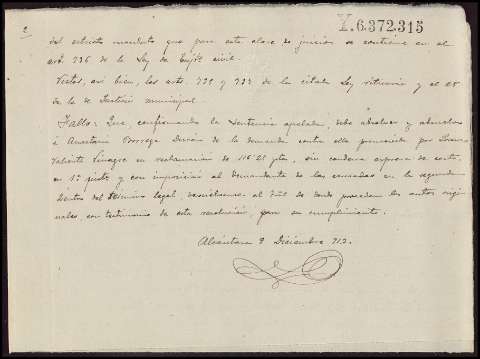 2
Y.6.372.315
del estricto mandato que para esta clase de juicios se contiene en el
art. 736 de la Ley de Enjto civil.
Vistos, así bien, los arts. 732 y 733 de la citada Ley rituaria y el 25
de la de Justicia municipal.
Fallo: Que, confirmando la sentencia apelada, debo absolver y absuelvo
á Anastasia Borrega Durán de la demanda contra ella promovida por
Valiente Linagre en reclamacion de 116'25 ptas, sin condena expresa de costas
en 1ª insta, y con imposicion al demandante de las causadas en la segunda.
Dentro del término legal, devuélvanse al Juzº de donde proceden los autos origi
nales, con testimonio de esta resolución, para su cumplimiento.
Alcántara 9 Diciembre 912.